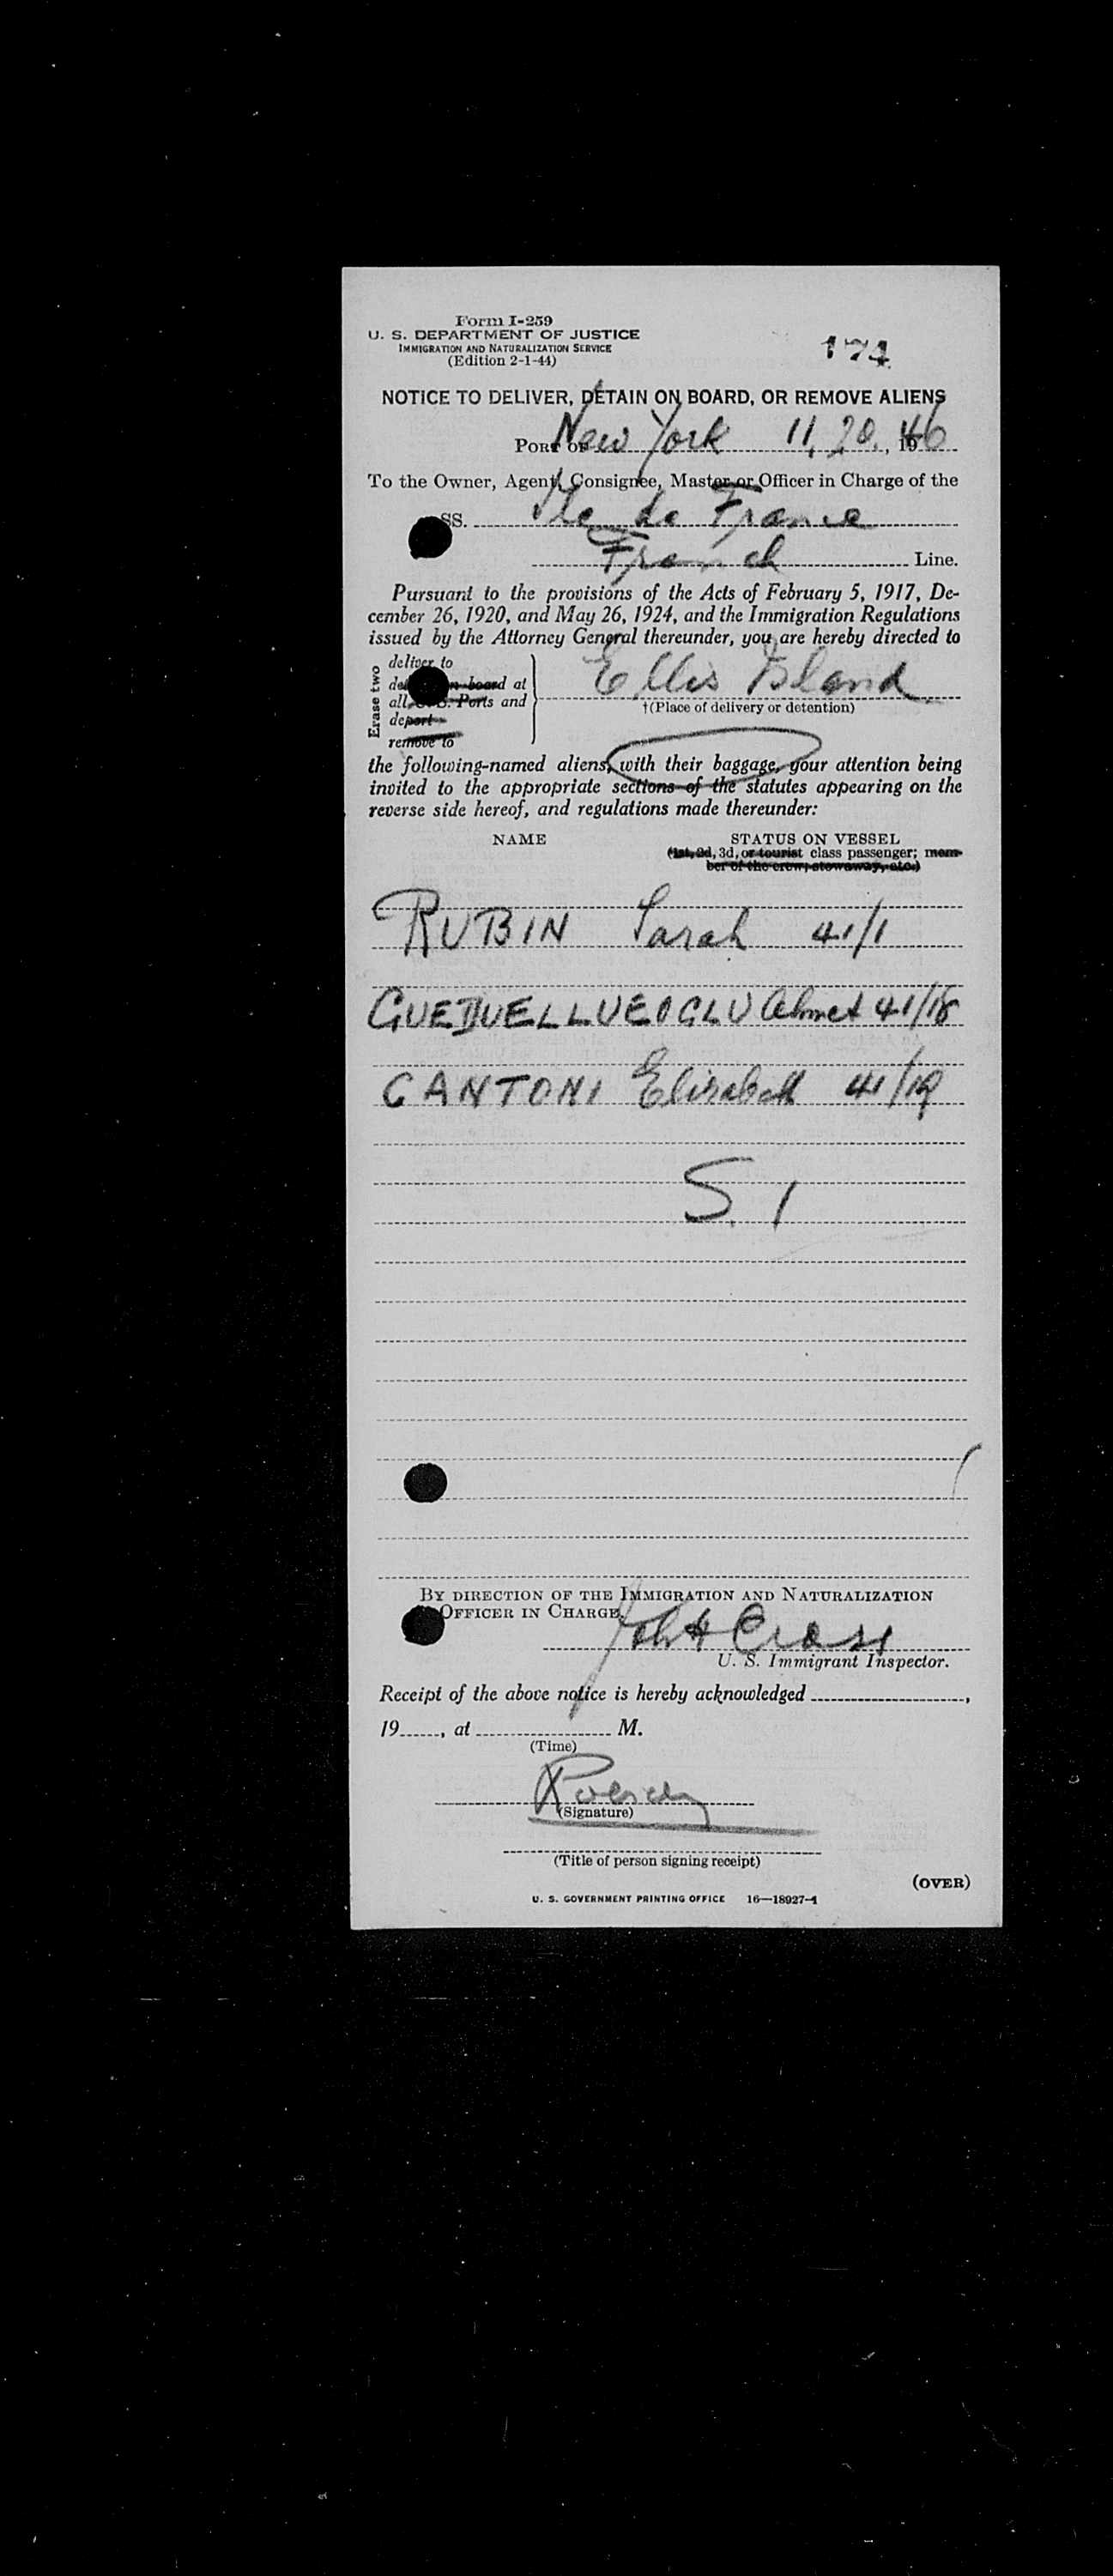 Form I-259
U. S. DEPARTMENT OF JUSTICE
IMMIGRATION AND NATURALIZATION SERVICE
(Edition 2-1-44)
174
NOTICE TO DELIVER, DETAIN ON BOARD, OR REMOVE ALIENS
PORT OF New York 11, 20, 1946
To the Owner, Agent, Consignee, Master or Officer in Charge of the
SS. Ile de France
French Line.
Pursuant to the provisions of the Acts of February 5, 1917, De-
cember 26, 1920, and May 26, 1924, and the Immigration Regulations
issued by the Attorney General thereunder, you are hereby directed to
Erase two
deliver to
on board at
all U.S. Ports and
deport
remove to
Ellis Island
†(Place of delivery or detention)
the following-named aliens, with their baggage, your attention being
invited to the appropriate sections of the statutes appearing on the
reverse side hereof, and regulations made thereunder:
NAME STATUS ON VESSEL
(1st, 2d, 3d, or tourist class passenger; mem-
ber of the crew; stowaway, etc.)
RUBIN Sarah 41/1
GUEDUELLUEOGLU Ahmet 41/18
CANTONI Elisabeth 41/19
S. 1
BY DIRECTION OF THE IMMIGRATION AND NATURALIZATION
OFFICER IN CHARGE.
Cross
U. S. Immigrant Inspector.
Receipt of the above notice is hereby acknowledged ,
19 , at M.
(Time)
(Signature)
(Title of person signing receipt)
(OVER)
U. S. GOVERNMENT PRINTING OFFICE 16—18927-1